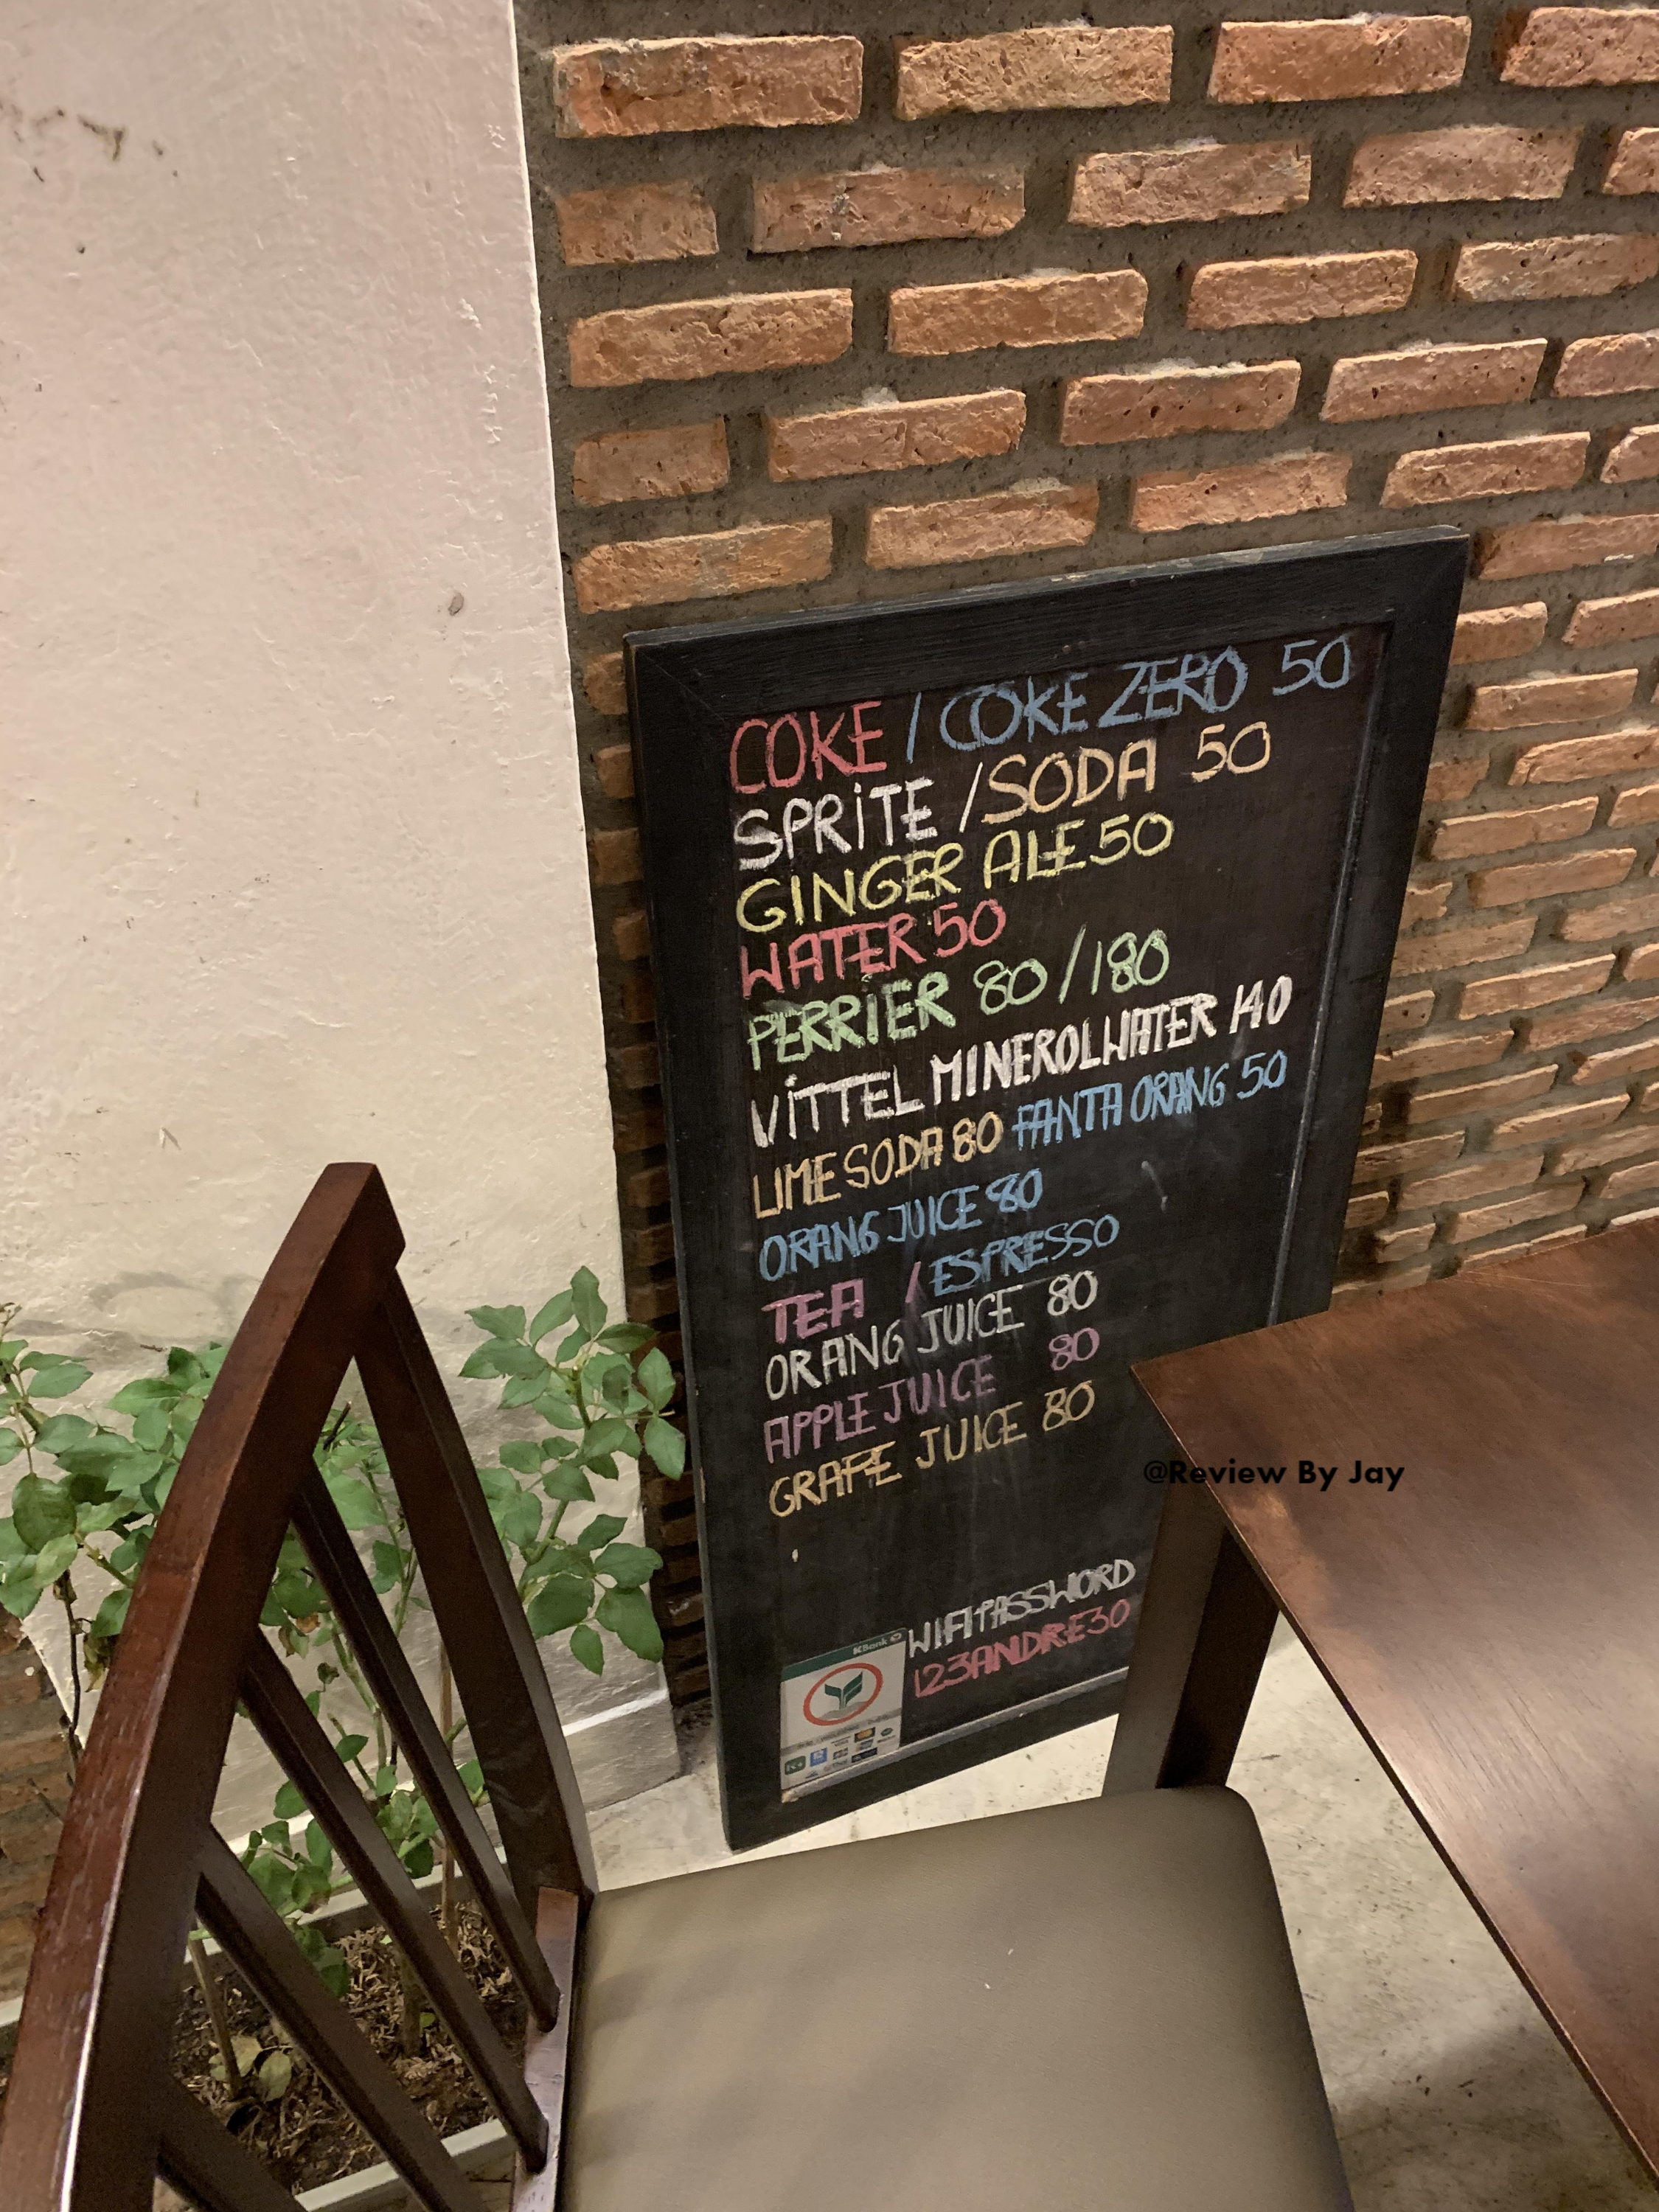 COKE / COKE ZERO 50
SPRiTE / SODA 50
GINGER ALE 50
WATER 50
PERRiER 80 / 180
ViTTEL MINEROLWATER 140
LIME SODA 80 FANTA ORANG 50
ORANG JUICE 80
TEA / ESPRESSO
ORANG JUICE 80
APPLE JUICE 80
GRAPE JUICE 80
@Review By Jay
WIFI PASSWORD
123ANDRE30
KBank
K+